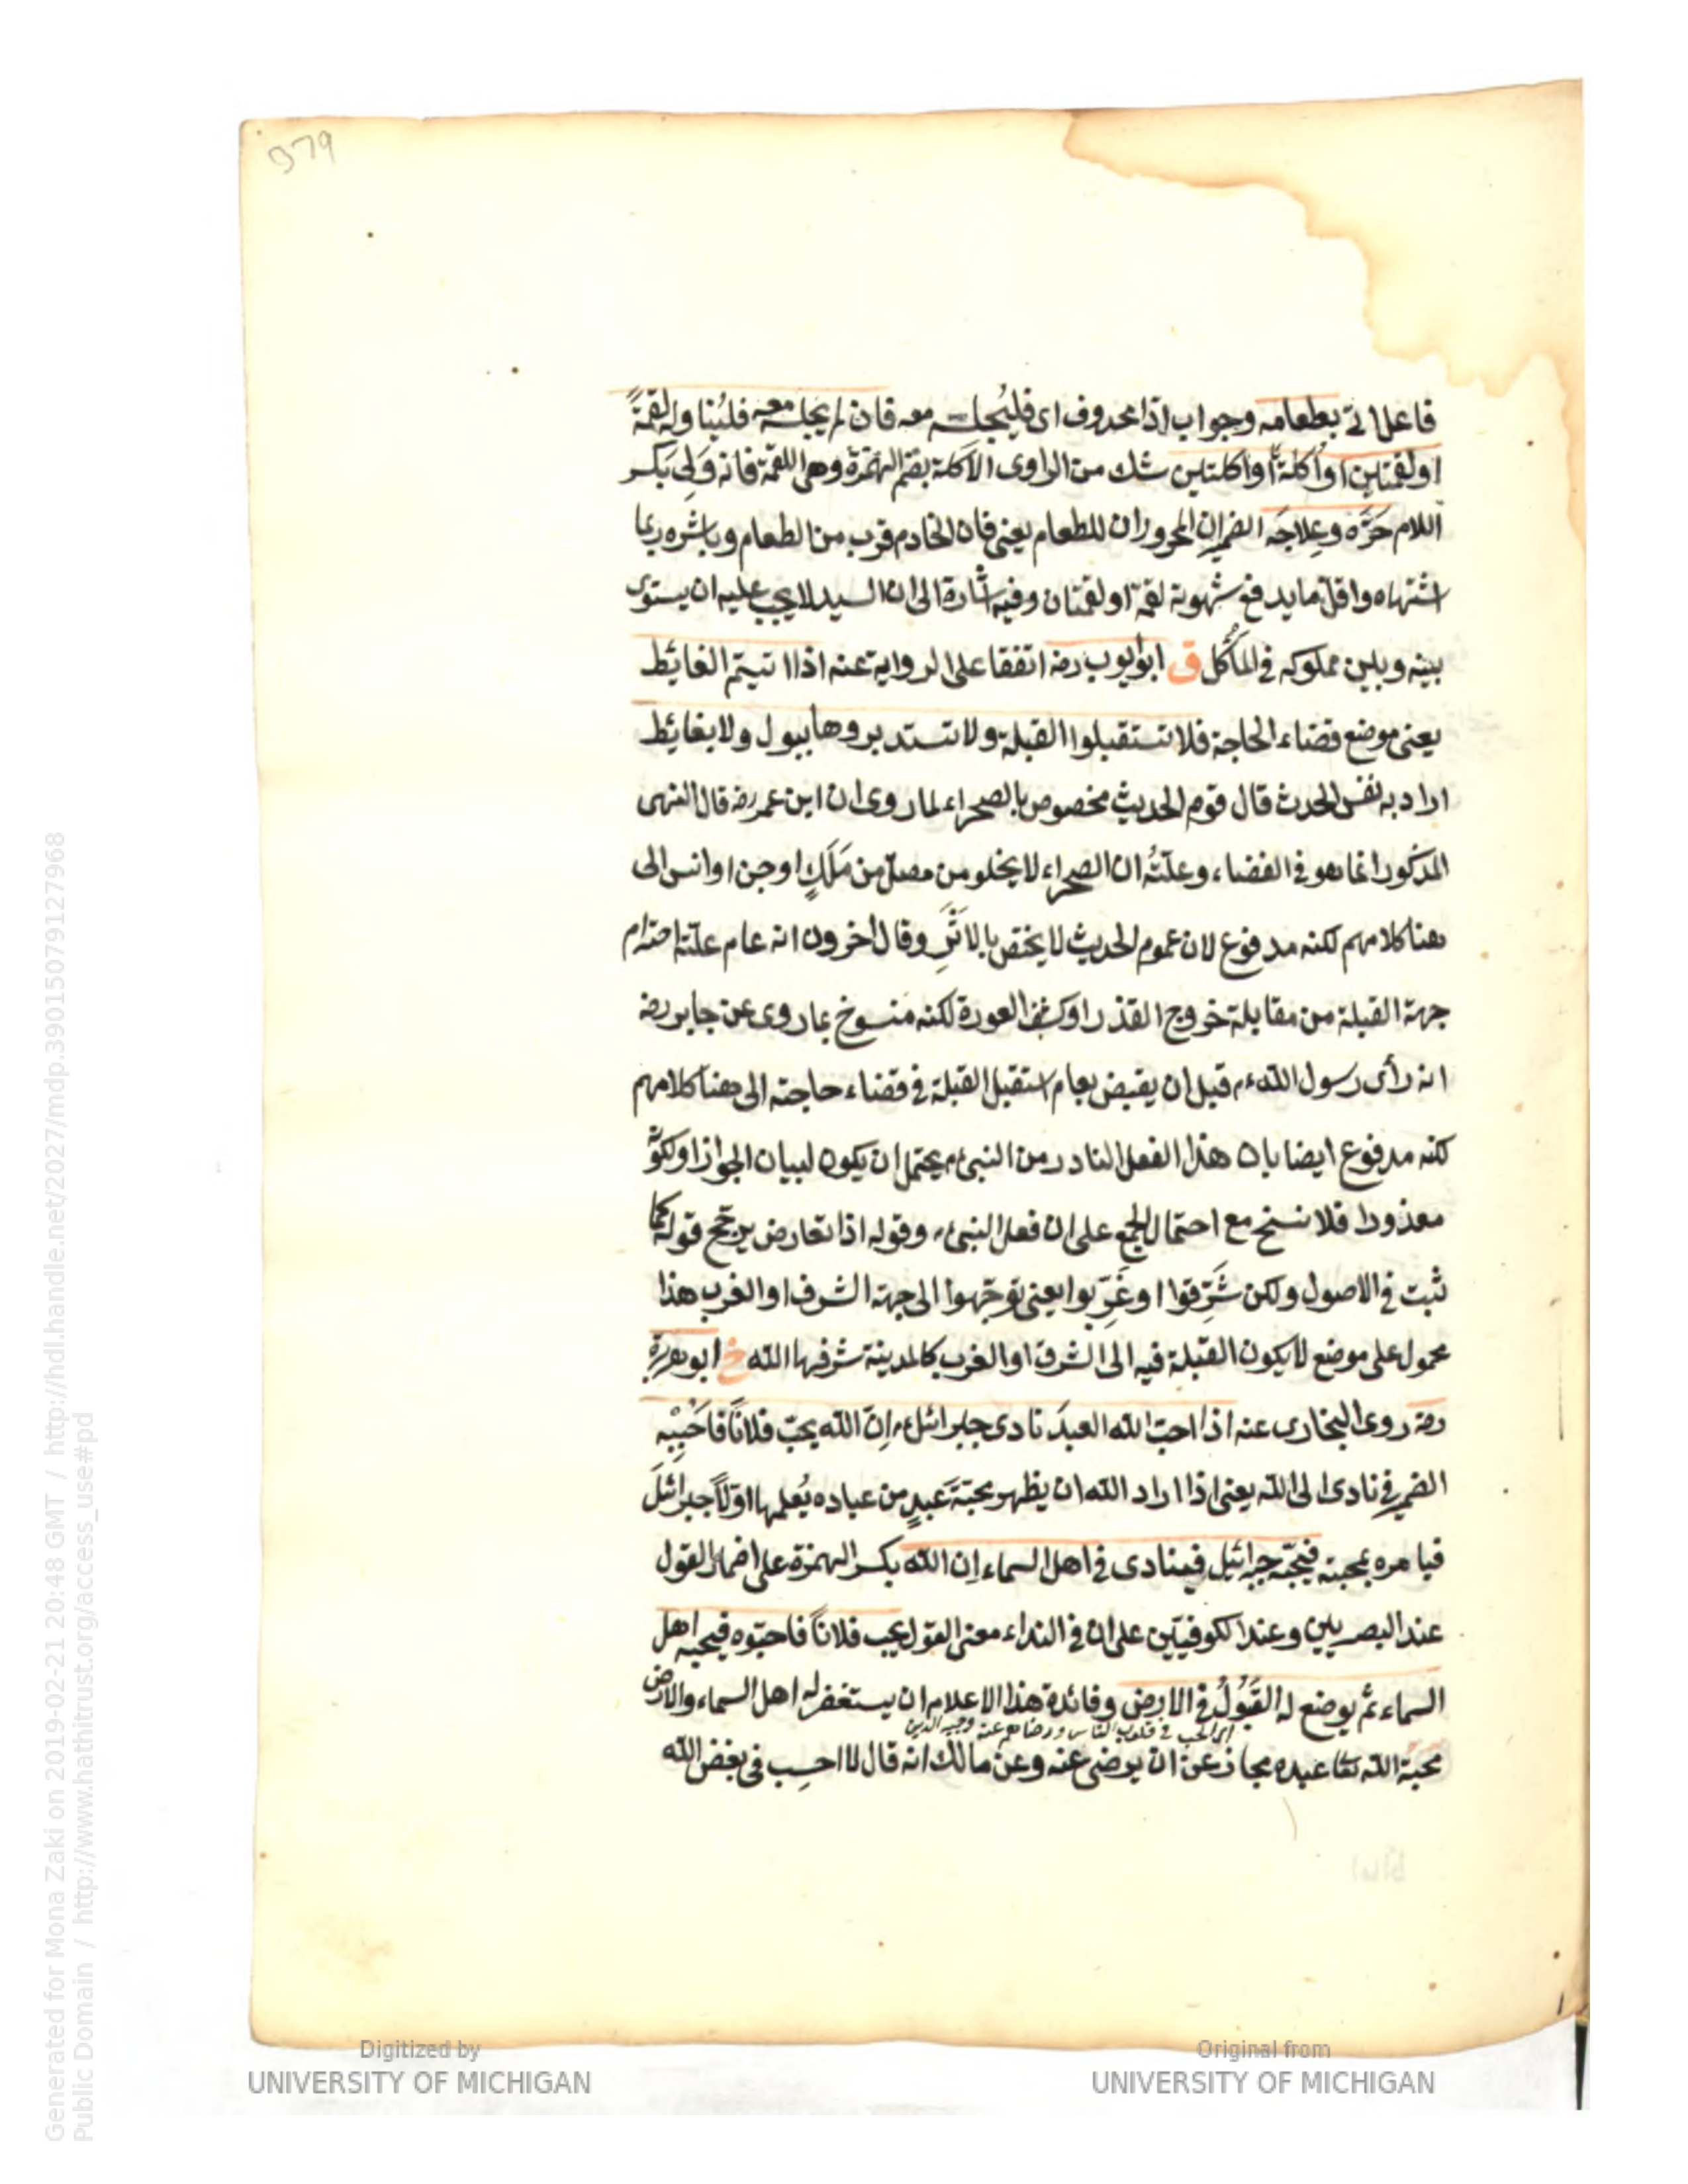 379
فاعل اتى بطعامه وجواب اذا محذوف اى فليُجلسه معه فان لم يجلسه معه فليُناوله لقمةً
او لقمتين او اُكلةً او اكلتين شك من الراوى الاكلة بضم الهمزة وهى اللقمة فانه وَلِىَ بكسر
اللام حَرَّه وعِلاجَه الضميران المجروران للطعام يعنى فان الخادم قرب من الطعام وباشره ربما
اشتهاه واقلّ ما يدفع شهوته لقمة او لقمتان وفيه اشارة الى ان السيد لا يجب عليه ان يستوى
بينه وبين مملوكه فى المأكل ق ابو ايوب رضه اتفقا على الرواية عنه اذا اتيتم الغائط
يعنى موضع قضاء الحاجة فلا تستقبلوا القبلة ولا تستدبروها ببول ولا بغائط
اراد به نفس الحدث قال قوم الحديث مخصوص بالصحراء لما روى ان ابن عمر رضه قال النهى
المذكور انما هو فى الفضاء وعلّتُه ان الصحراء لا يخلو من مصلّ من مَلَكٍ او جن او انس الى
هنا كلامهم لكنه مدفوع لان عموم الحديث لا يختص بالاَثَرِ وقال اخرون انه عام علّته احترام
جهة القبلة من مقابلة خروج القذر او كشف العورة لكنه منسوخ بما روى عن جابر رضه
انه رأى رسول الله عم قبل ان يقبض بعام استقبل القبلة فى قضاء حاجته الى هنا كلامهم
لكنه مدفوع ايضا بان هذا الفعل النادر من النبى عم يحتمل ان يكون لبيان الجواز او لكونه
معذورا فلا نسخ مع احتمال الجمع على ان فعل النبى عم وقوله اذا تعارض يرجّح قوله كما
ثبت فى الاصول ولكن شَرِّقوا او غَرِّبوا يعنى توجّهوا الى جهة الشرق او الغرب هذا
محمول على موضع لا يكون القبلة فيه الى الشرق او الغرب كالمدينة شرفها الله خ ابو هريرة
رضه روى البخارى عنه اذا احبّ الله العبدَ نادى جبرائيل عم اِنّ الله يحبّ فلانًا فاَحْبِبْه
الضمير فى نادى الى الله يعنى اذا اراد الله ان يظهر محبّةَ عَبدٍ من عباده يُعلمها اوّلاً جبرائيلَ
فيامره بمحبته فيحبّه جبرائيل فينادى فى اهل السماء اِن الله بكسر الهمزة على اضمار القول
عند البصريين وعند الكوفيّين على ان فى النداء معنى القول يحب فلانًا فاحبّوه فيحبه اهل
السماء ثم يوضع له القَبُولُ فى الارض وفائدة هذا الاعلام ان يستغفر له اهل السماء والارض
اى الحب فى قلوب الناس ورضاهم عنه
محبة الله تعا عبده مجاز عن ان يرضى عنه وعن مالك انه قال لا احسب فى بغض الله
Generated for Mona Zaki on 2019-02-21 20:48 GMT / http://hdl.handle.net/2027/mdp.39015079127968
Public Domain / http://www.hathitrust.org/access_use#pd
Digitized by
UNIVERSITY OF MICHIGAN
Original from
UNIVERSITY OF MICHIGAN